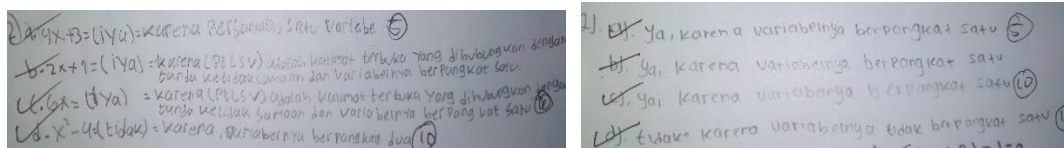 2) a. 4x+3=(iya)=karena Persamaan satu variabe 5
b. 2x+1=(iya)=karena (PtLSV) adalah kalimat terbuka yang dihubungkan dengan
tanda ketidaksamaan dan variabelnya berpangkat satu.
c. 6x=(iya) =karena (PtLSV) adalah kalimat terbuka yang dihubungkan dengan
tanda ketidak samaan dan variabelnya berpangkat satu 10
d. x²-4=(tidak)=karena, variabelnya berpangkat dua 10
2). a). Ya, karena variabelnya berpangkat satu 5
b). Ya, karena variabelnya berpangkat satu
c). Ya, karena variabenya berpangkat satu 10
d). tidak, karena variabelnya tidak berpangkat satu